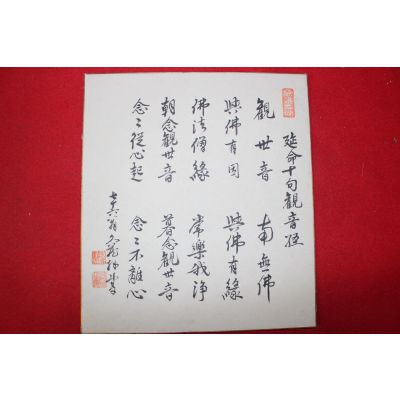 延命十句觀音経
觀世音 南無佛
與佛有因 與佛有緣
佛法僧緣 常樂我淨
朝念觀世音 暮念觀世音
念々從心起 念々不離心